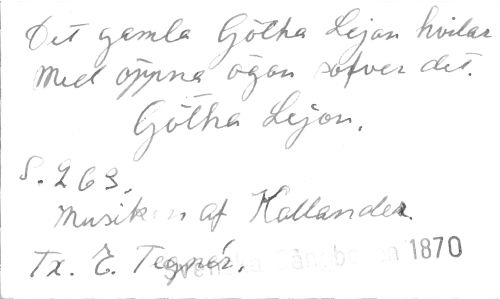 Det gamla Götha Lejon hvilar
Med öppna ögon sofver det.
Götha Lejon.
S. 263.
Musiken af Kallander.
Tx. E. Tegnér.
Svenska Sångboken 1870